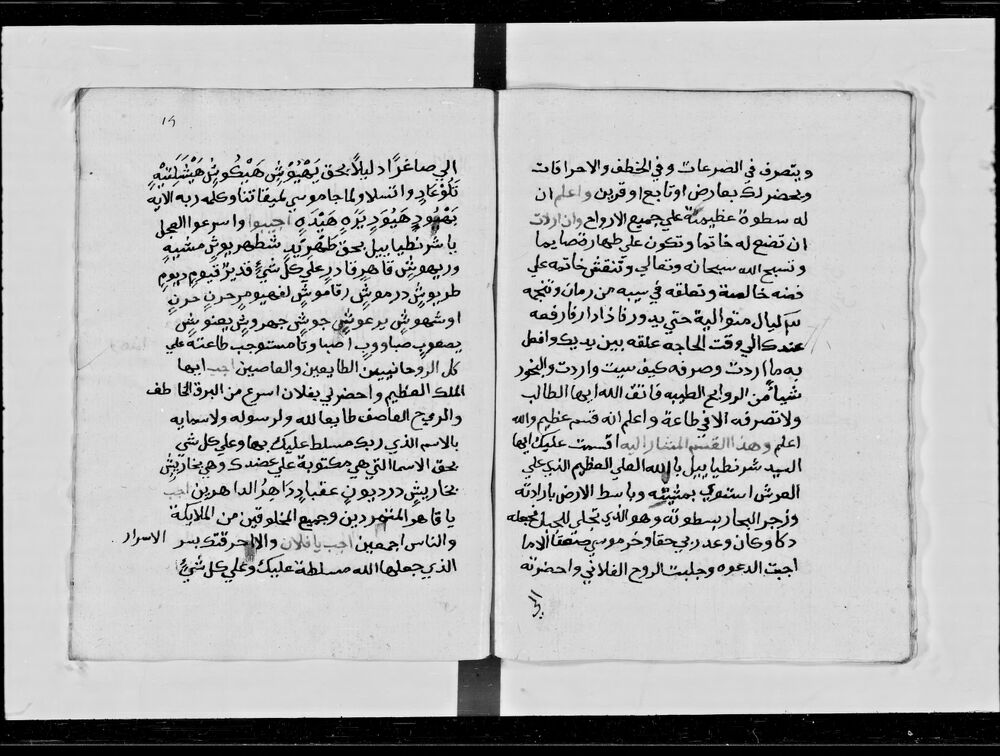 ويتصرف في الصرعات وفي الخطف والاحراقات
ويحضر لك بعارض او تابع او قرين واعلم ان
له سطوة عظيمة علي جميع الارواح وان اردت
ان تضع له خاتما وتكون علي طهارة صايما
وتسبح الله سبحانه وتعالي وتنقش خاتمه علي
فضه خالصة وتعلقه في سيبه من رمان وتنجمه
ليال متوالية حتي يدور فاذا دار فارفعه
عندك الي وقت الحاجه علقه بين يديك وافعل
به ما اردت وصرفه كيف شيت واردت والبخور
شياء من الروايح الطيبه فاتق الله ايها الطالب
ولا تصرفه الا في طاعة واعلم انه قسم عظيم والله
اعلم وهذا القسم المشار اليه اقسمت عليك ايها
السيد شرنطياييل بالله العلي العظيم الذي علي
العرش استوي بمشيئته وباسط الارض بارادته
وزجر البحار بسطوته وهو الذي تجلي للجبل فجعله
دكا وكان وعد ربي حقا وخر موسي صعقا الا ما
اجبت الدعوه وجلبت الروح الفلاني واحضرته
الي
١٩
الي صاغرًا دليلاً بحق يَهْيُوْشٍ هَيْكُوشٍ
وا تسلا ولما جا موسي لميقاتنا وكلمه ربه الايه
بَهْيُودٍ هَيُودٍ يَرَهٍ هَيْدَهٍ اجيبوا واسرعوا العجل
يا شرنطياييل بحق طَهَرٍيَدٍ شطهريوشٍ مشيهٍ
وربهوشٍ قاهرٍ قادرٍ علي كل شيءٍ قديرٌ قيومٍ ديومٍ
طربوشٍ درموشٍ رقاموشٍ لفهيومٍ حرنٍ حرنٍ
اوشهوشٍ يرعوشٍ جوشٍ جهروشٍ يعنوشٍ
يصعوبٍ صباووبٍ اصباوتا مستوجب طاعته علي
كل الروحانيين الطايعين والعاصين اجب ايها
الملك العظيم واحضر لي بفلان اسرع من البرق الخاطف
والريح العاصف طايعا لله ولرسوله ولاسمايه
بالاسم الذي ربك مسلط عليك بها وعلي كل شي
بحق الاسما التي هي مكتوبة علي عضدك وهي بخاريشٍ
بخاريشٍ درديونٍ عقبادٍ دَاهِرُ الداهرين اجب
يا قاهر المتمردين وجميع المخلوقين من الملايكة
والناس اجمعين اجب يا فلان والا احرقتك بسر الاسرار
الذي جعلها الله مسلطة عليك وعلي كل شيءٍ